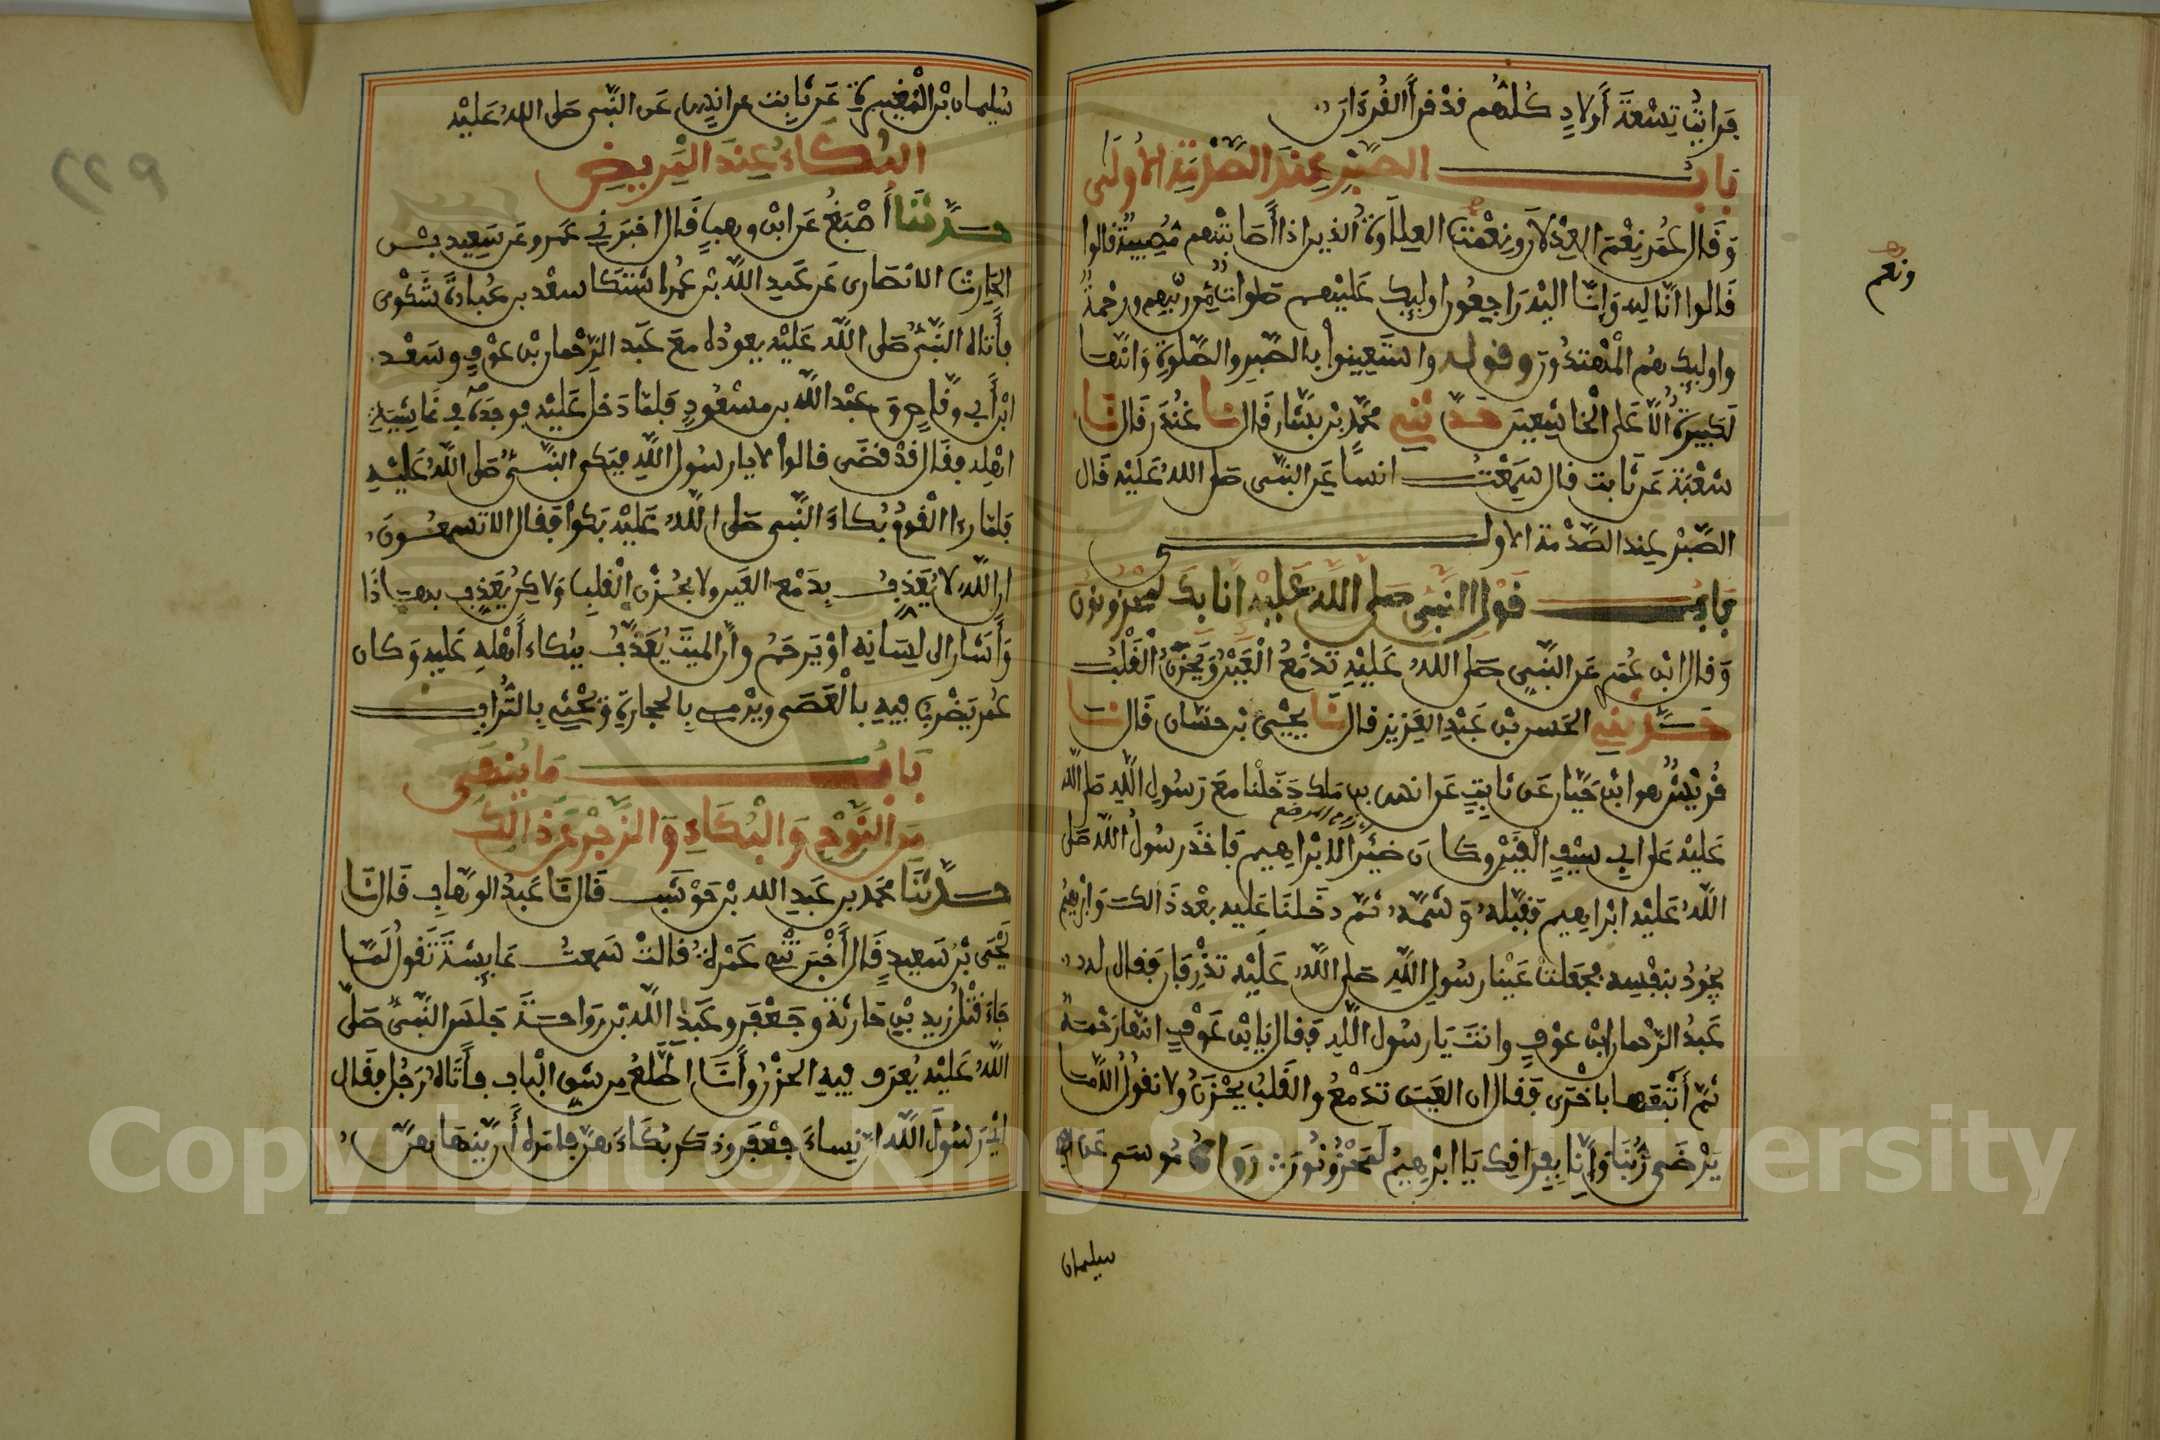 فرأيت تسعة أولاد كلهم قد قرأ القرءان
باب الصبر عند الصدمة الأولى
وقال عمر نعم العدلان ونعمت العلاوة الذين اذا أصابتهم مصيبة قالوا
ونعم
قالوا انا لله وإنا اليه راجعون اوليك عليهم صلوات من ربهم ورحمة
واوليك هم المهتدون وقوله واستعينوا بالصبر والصلوة وانها
لكبيرة الا على الخاشعين حدثني محمد بن بشار قال نا غندر قال نا
شعبة عن ثابت قال سمعت انسا عن النبي صلى الله عليه قال
الصبر عند الصدمة الاولى
باب قول النبي صلى الله عليه انا بك لمحزونون
وقال ابن عمر عن النبي صلى الله عليه تدمع العين ويحزن القلب
حدثني الحسن بن عبد العزيز قال نا يحيى بن حسان قال نا
قريش هو ابن حيان عن ثابت عن انس بن ملك دخلنا مع رسول الله صلى الله
عليه على ابي سيف القين وكان ضئرا لابراهيم فاخذ رسول الله صلى
الله عليه ابراهيم فقبله وشمه ثم دخلنا عليه بعد ذالك وابرهيم
يجود بنفسه فجعلت عينا رسول الله صلى الله عليه تذرفان فقال له
عبد الرحمان ابن عوف وانت يا رسول الله فقال يا ابن عوف انها رحمة
ثم أتبعها باخرى فقال ان العين تدمع والقلب يحزن ولا نقول الا ما
يرضى ربنا وإنا بفراقك يا ابرهيم لمحزونون رواه موسى عن
سليمان
سليمان بن المغيرة عن ثابت عن انس عن النبي صلى الله عليه
البكاء عند المريض
حدثنا أصبغ عن ابن وهب قال اخبرني عمرو عن سعيد بن
الحارث الانصاري عن عبد الله بن عمر اشتكا سعد بن عبادة شكوى
فأتاه النبي صلى الله عليه يعوده مع عبد الرحمان بن عوف وسعد
ابن أبي وقاص وعبد الله بن مسعود فلما دخل عليه فوجده في غاشية
اهله فقال قد قضى قالوا لا يا رسول الله فبكى النبي صلى الله عليه
فلما رءا القوم بكاء النبي صلى الله عليه بكوا فقال الا تسمعون
ان الله لا يعذب بدمع العين ولا بحزن القلب ولاكن يعذب بهاذا
وأشار الى لسانه او يرحم وان الميت يعذب ببكاء أهله عليه وكان
عمر يضرب فيه بالعصى ويرمي بالحجارة ويحثي بالتراب
باب ما ينهى
من النوح والبكاء والزجر عن ذالك
حدثنا محمد بن عبد الله بن حوشب قال نا عبد الوهاب قال نا
يحيى بن سعيد قال أخبرتني عمرة قالت سمعت عايشة تقول لما
جاء قتل زيد بن حارثة وجعفر وعبد الله بن رواحة جلس النبي صلى
الله عليه يعرف فيه الحزن وأنا اطلع من شق الباب فأتاه رجل فقال
اي رسول الله ان نساء جعفر وذكر بكاءهن فامره أن ينهاهن